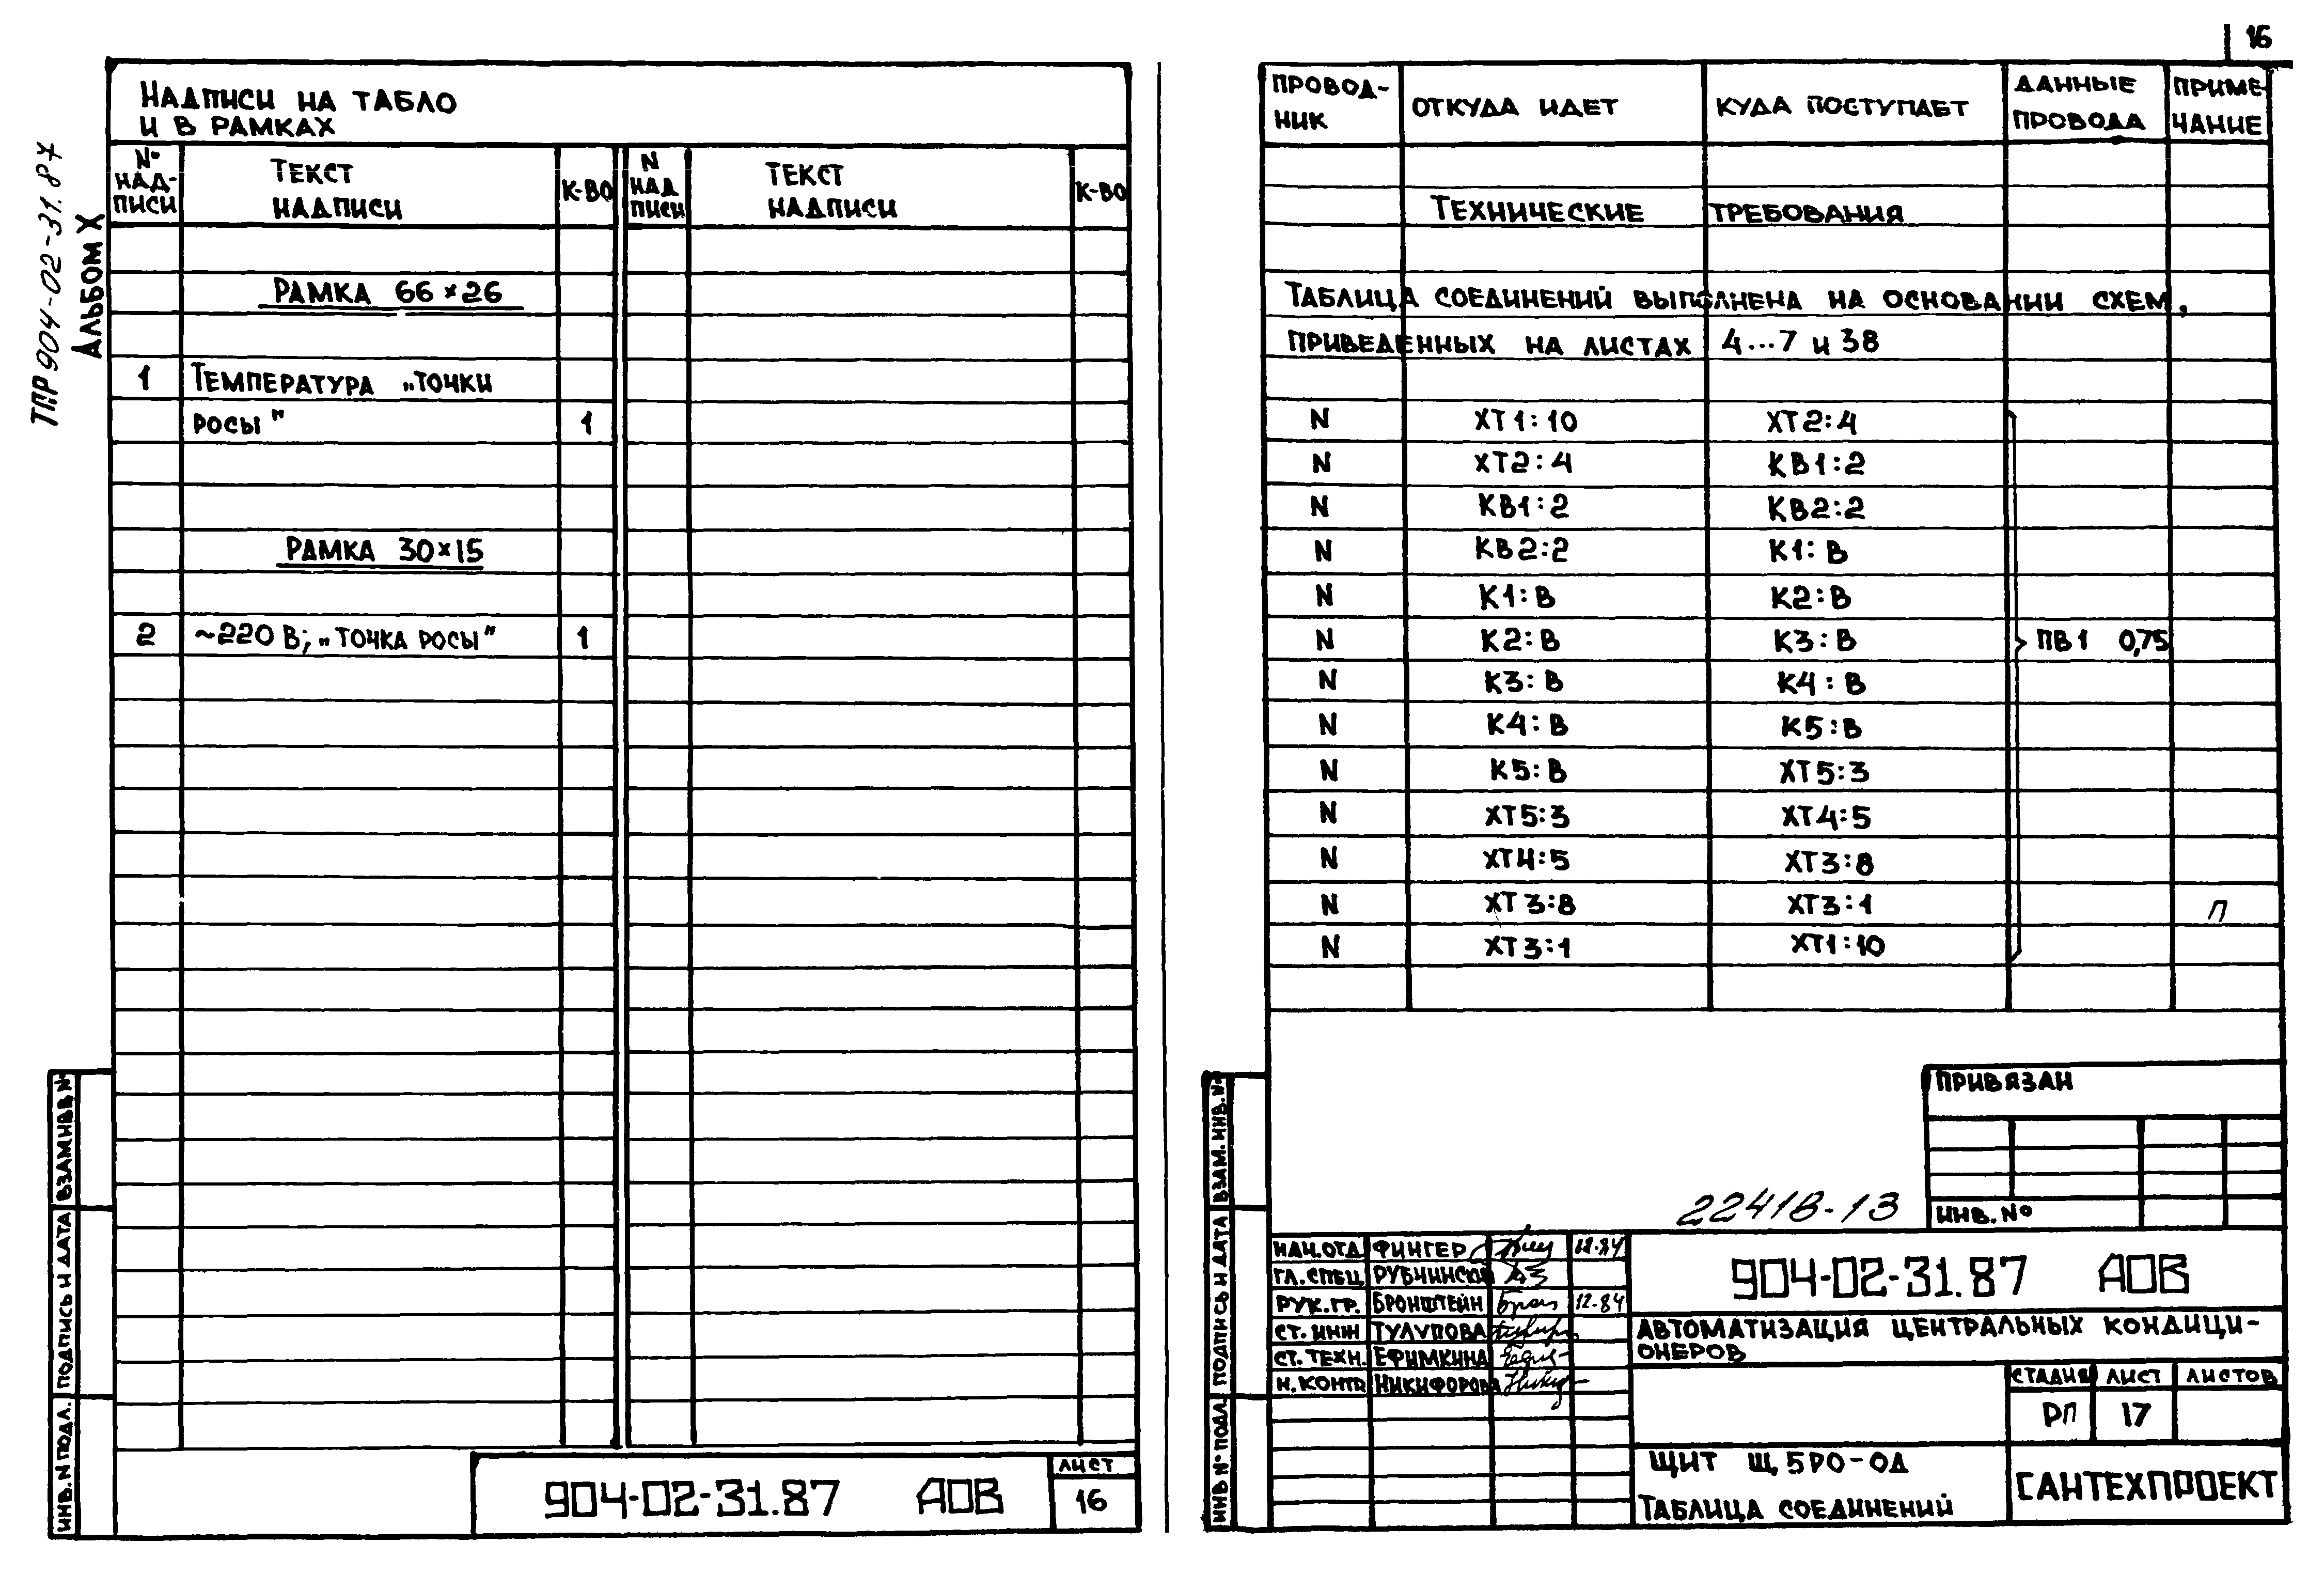 16
ТПР 904-02-31.87
АЛЬБОМ X
НАДПИСИ НА ТАБЛО
И В РАМКАХ
№ НАД-ПИСИ ТЕКСТ НАДПИСИ К-ВО N НАД ПИСИ ТЕКСТ НАДПИСИ К-ВО
РАМКА 66×26
1 ТЕМПЕРАТУРА „ТОЧКИ
РОСЫ" 1
РАМКА 30×15
2 ~220 В; „ТОЧКА РОСЫ" 1
ВЗАМ.ИНВ №
ПОДПИСЬ И ДАТА
ИНВ. N ПОДЛ.
904-02-31.87 АОВ
ЛИСТ
16
ПРОВОД-НИК ОТКУДА ИДЕТ КУДА ПОСТУПАЕТ ДАННЫЕ ПРОВОДА ПРИМЕ-ЧАНИЕ
ТЕХНИЧЕСКИЕ ТРЕБОВАНИЯ
ТАБЛИЦА СОЕДИНЕНИЙ ВЫПОЛНЕНА НА ОСНОВАНИИ СХЕМ,
ПРИВЕДЕННЫХ НА ЛИСТАХ 4...7 и 38
N ХТ1:10 ХТ2:4
N ХТ2:4 КВ1:2
N КВ1:2 КВ2:2
N КВ2:2 К1:В
N К1:В К2:В
N К2:В К3:В ПВ1 0,75
N К3:В К4:В
N К4:В К5:В
N К5:В ХТ5:3
N ХТ5:3 ХТ4:5
N ХТ4:5 ХТ3:8
N ХТ3:8 ХТ3:1 П
N ХТ3:1 ХТ1:10
ПРИВЯЗАН
ИНВ. №
22418-13
ВЗАМ. ИНВ. №
ПОДПИСЬ И ДАТА
ИНВ № ПОДЛ.
НАЧ.ОТД ФИНГЕР 12.84
ГЛ.СПЕЦ РУБЧИНСКИЙ
РУК.ГР. БРОНШТЕЙН 12-84
СТ. ИНЖ ТУЛУПОВА
СТ. ТЕХН. ЕФИМКИНА
Н. КОНТР НИКИФОРОВА
904-02-31.87 АОВ
АВТОМАТИЗАЦИЯ ЦЕНТРАЛЬНЫХ КОНДИЦИ-
ОНЕРОВ
СТАДИЯ ЛИСТ ЛИСТОВ
РП 17
ЩИТ Щ 5РО-ОД
ТАБЛИЦА СОЕДИНЕНИЙ
САНТЕХПРОЕКТ